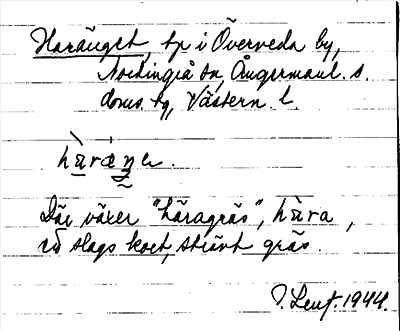 Haräuget, tp i Överveda by,
Nordingrå sn, Ångermanl. s.
doms. tg, Västern. l.
Där växer "häragräs", hàra,
ett slags kort, strävt gräs.
1944.